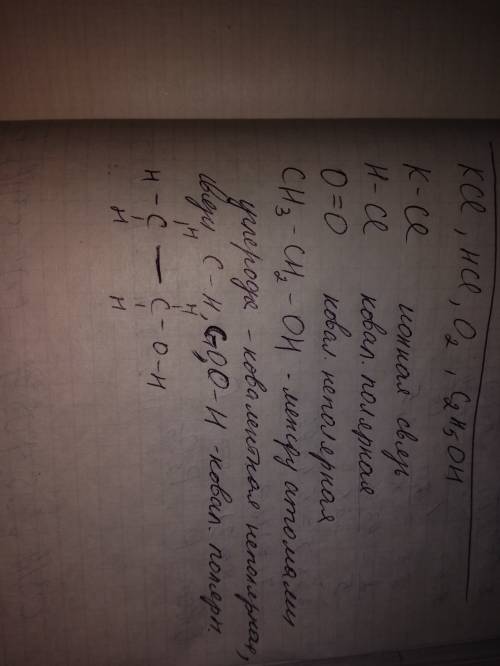 KCl, HCl, O2, C2H5OH
K-Cl ионная связь
H-Cl ковал. полярная
O=O ковал. неполярная
CH3-CH2-OH - между атомами
углерода - ковалентная неполярная,
связи C-H, C-O, O-H - ковал. полярн.
H H
H-C — C-O-H
H H